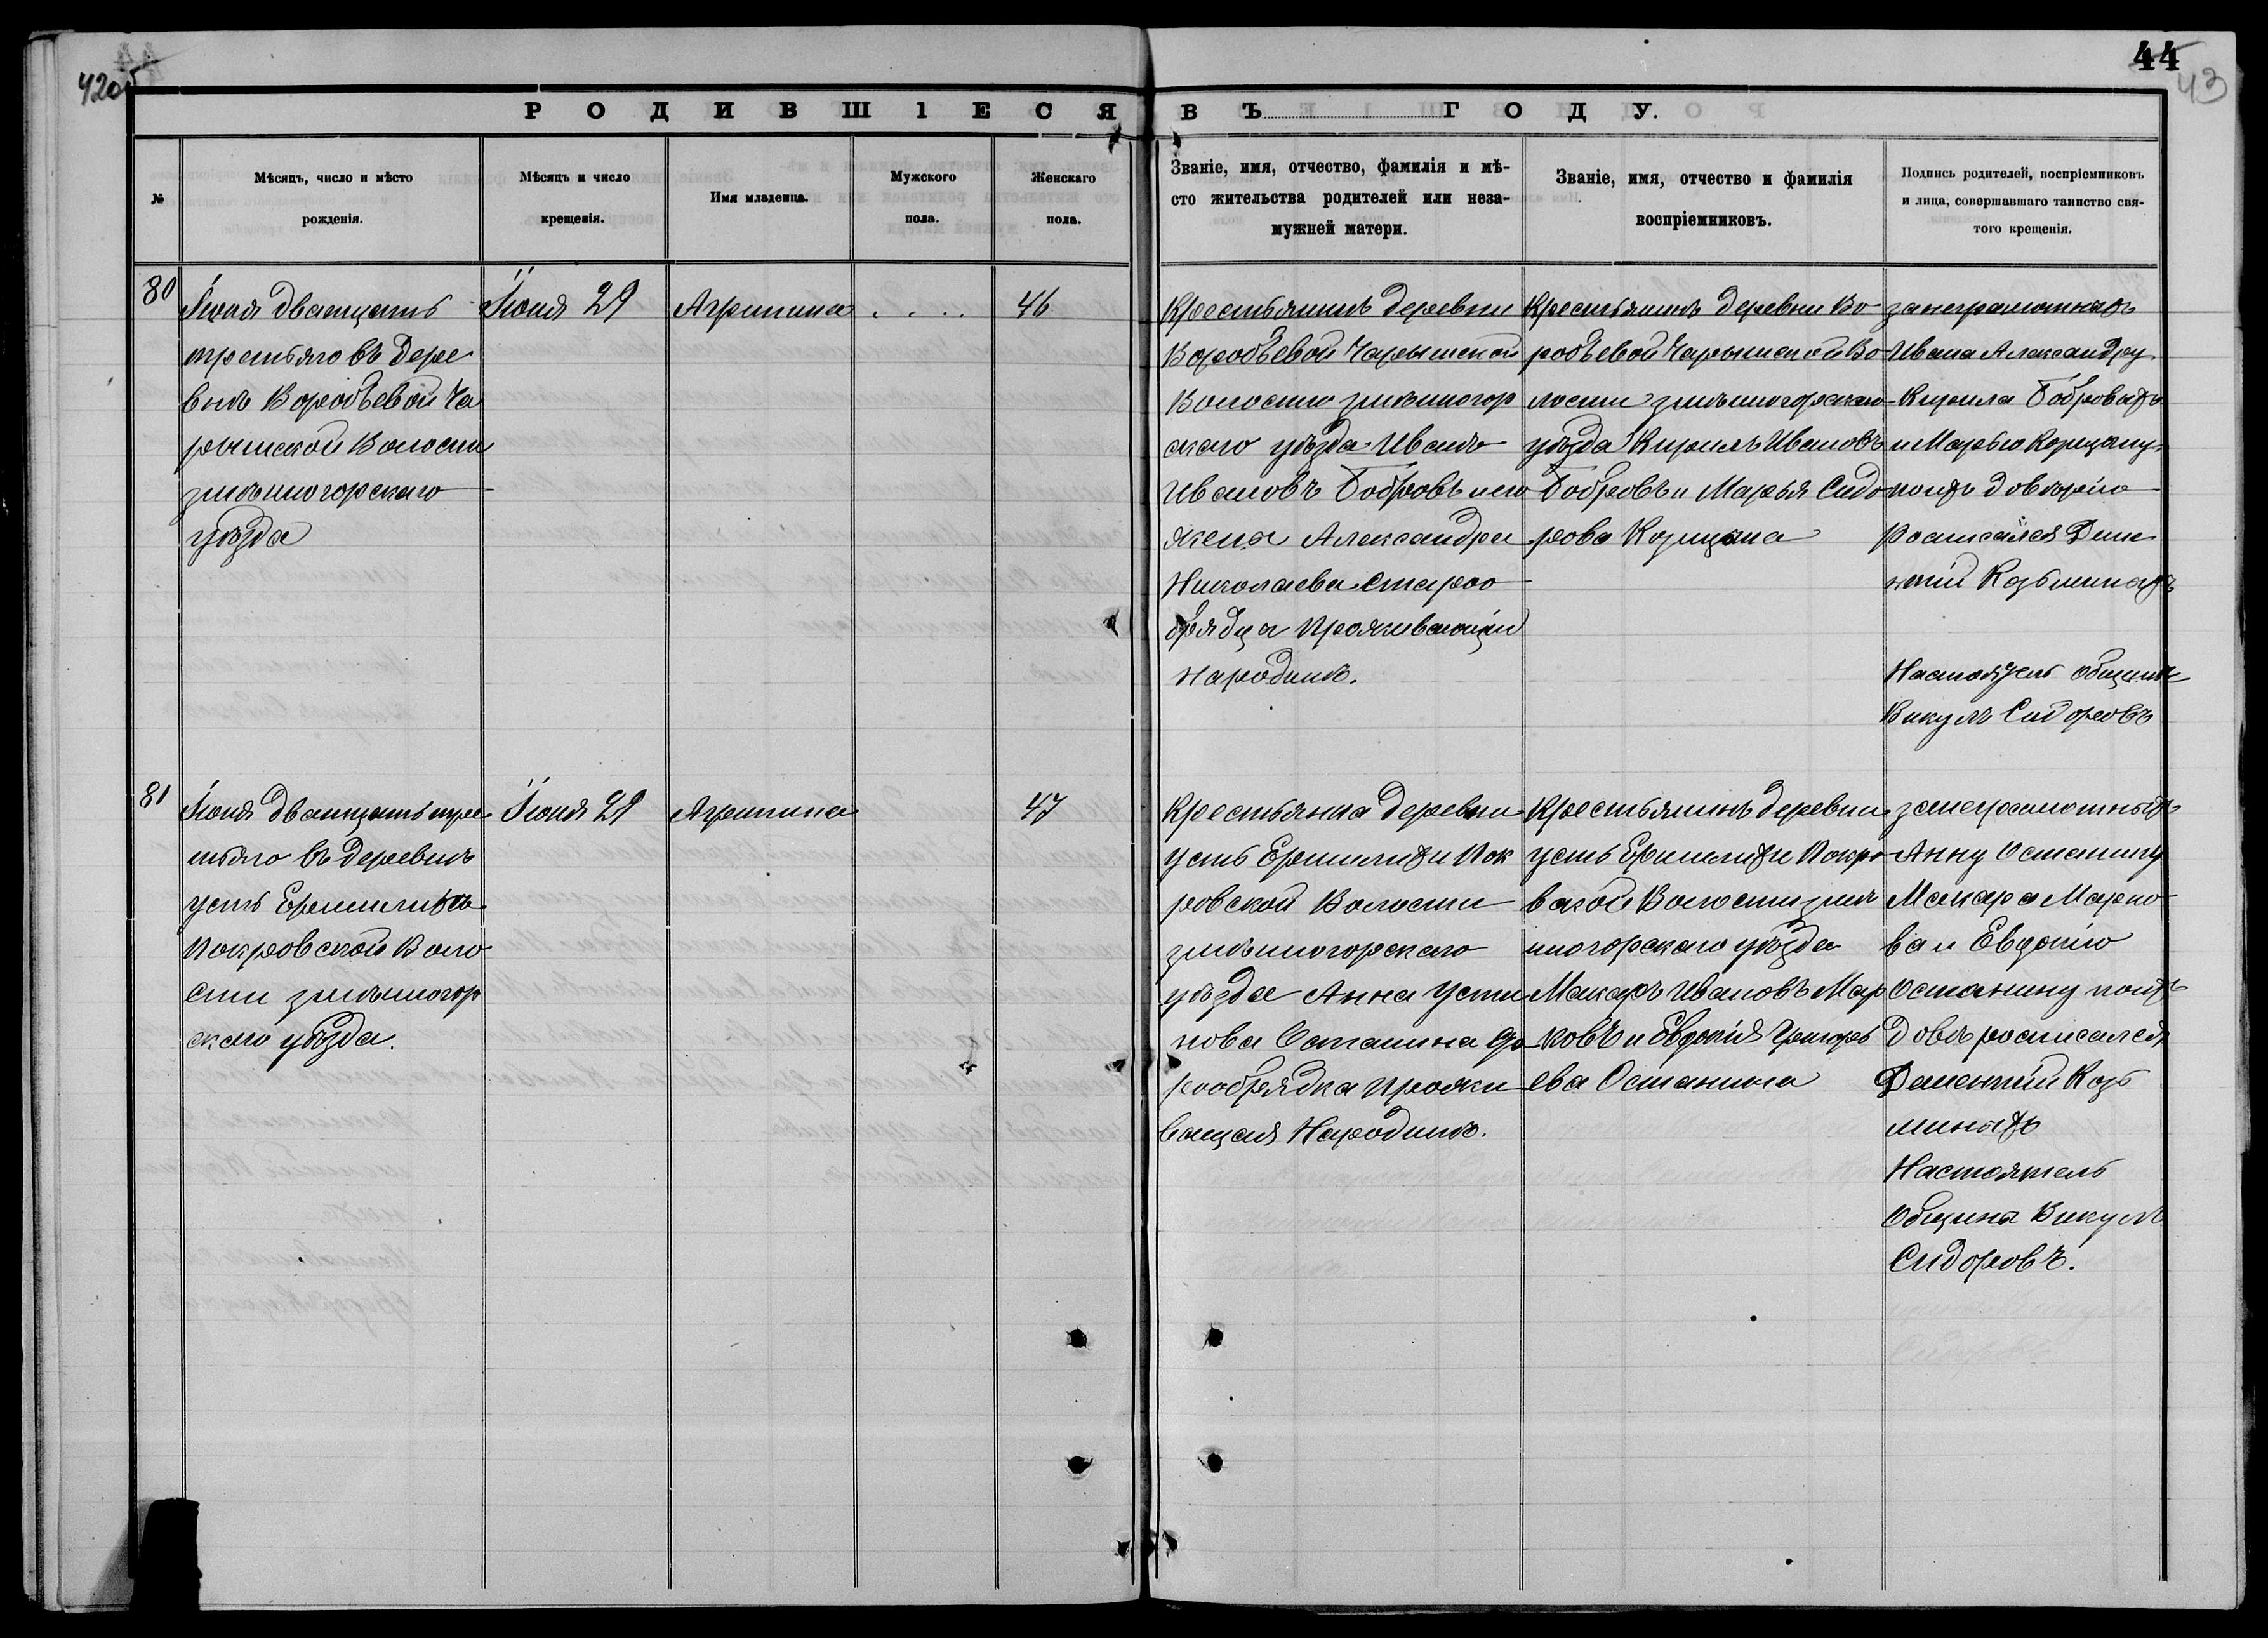 42об
44
43
РОДИВШІЕСЯ ВЪ ГОДУ.
№
Мѣсяцъ, число и мѣсто
рожденія.
Мѣсяцъ и число
крещенія.
Имя младенца.
Мужского
пола.
Женскаго
пола.
Званіе, имя, отчество, фамилія и мѣ-
сто жительства родителей или неза-
мужней матери.
Званіе, имя, отчество и фамилія
воспріемниковъ.
Подпись родителей, воспріемниковъ
и лица, совершавшаго таинство свя-
того крещенія.
80
Іюня дваццать
третьяго въ дере
внѣ Воробьевой Ча
рышской Волости
змѣиногорскаго
уѣзда
Іюня 29
Агрипина
. . . .
46
Крестьянинъ деревни
Воробьевой Чарышской
Волости змѣиногор
скаго уѣзда Иванъ
Ивановъ Бобровъ и его
жена Александра
Николаева староо
брядцы проживающіи
народинѣ.
Крестьянинъ деревни Во-
робьевой Чарышской Во-
лости змѣиногорскаго
уѣзда Кирилъ Ивановъ
Бобровъ и Марья Сидо
рова
занеграмотныхъ
Ивана Александру
Кирила Бобровыхъ
и Марью
поихъ довѣрію
Росписался Деме
нтій Козьминыхъ
Настоятель общины
Викулъ Сидоровъ
81
Іюня дваццать тре
тьяго въ деревнѣ
усть Ермилихѣ
Покровской Воло
сти змѣиногор
скаго уѣзда.
Іюня 29
Агрипина
47
Крестьянка деревни
усть Ермилихи Пок
ровской Волости
змѣиногорскаго
уѣзда Анна Усти
нова Останина
рообрядка прожи
ващая Народинѣ.
Крестьянинъ деревни
усть Ермилихи Покро
вской Волости змѣи
иногорскаго уѣзда
Макаръ Ивановъ Мар
ковъ и Евдокія Григорь
ева Останина
занеграмотныхъ
Анну Останину
Макара Марко
ва и Евдокію
Останину поихъ
Довѣ росписался
Дементій Козь
миныхъ
Настоятель
Общины Викулъ
Сидоровъ.